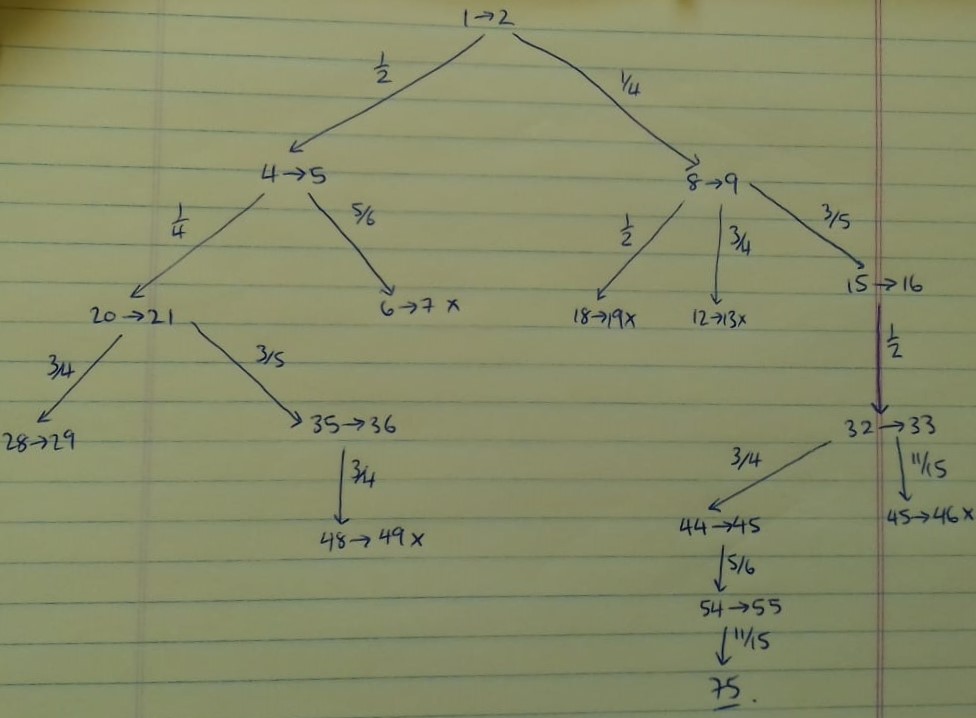 1→2
1/2 1/4
4→5 8→9
1/4 5/6 1/2 3/4 3/5
15→16
20→21 6→7 x 18→19x 12→13x
3/4 3/5 1/2
28→29 35→36 32→33
3/4 3/4 11/15
48→49 x 44→45 45→46 x
5/6
54→55
11/15
75.